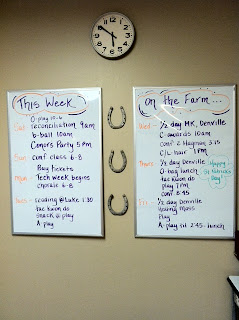 This Week
O-play 10-6
Sat reconciliation 9am
b-ball 10am
Conors Party 5pm
Sun conf class 6-8
Play tickets
Mon - Tech week begins
chorale 6-8
Tues reading @ Luke 1:30
tae kwon do
snack @ play
A-play
On the Farm...
Wed - 1/2 day MK, Denville
C-awards 10am
conf @ 3:15
C/L hair 1pm
Thurs 1/2 day Denville
O-bag lunch
tae kwon do
play 7pm
conf 8:45
Happy
St. Patricks
Day!
Fri - 1/2 day Denville
Young Moms
Play
A-play sit 2:45-lunch